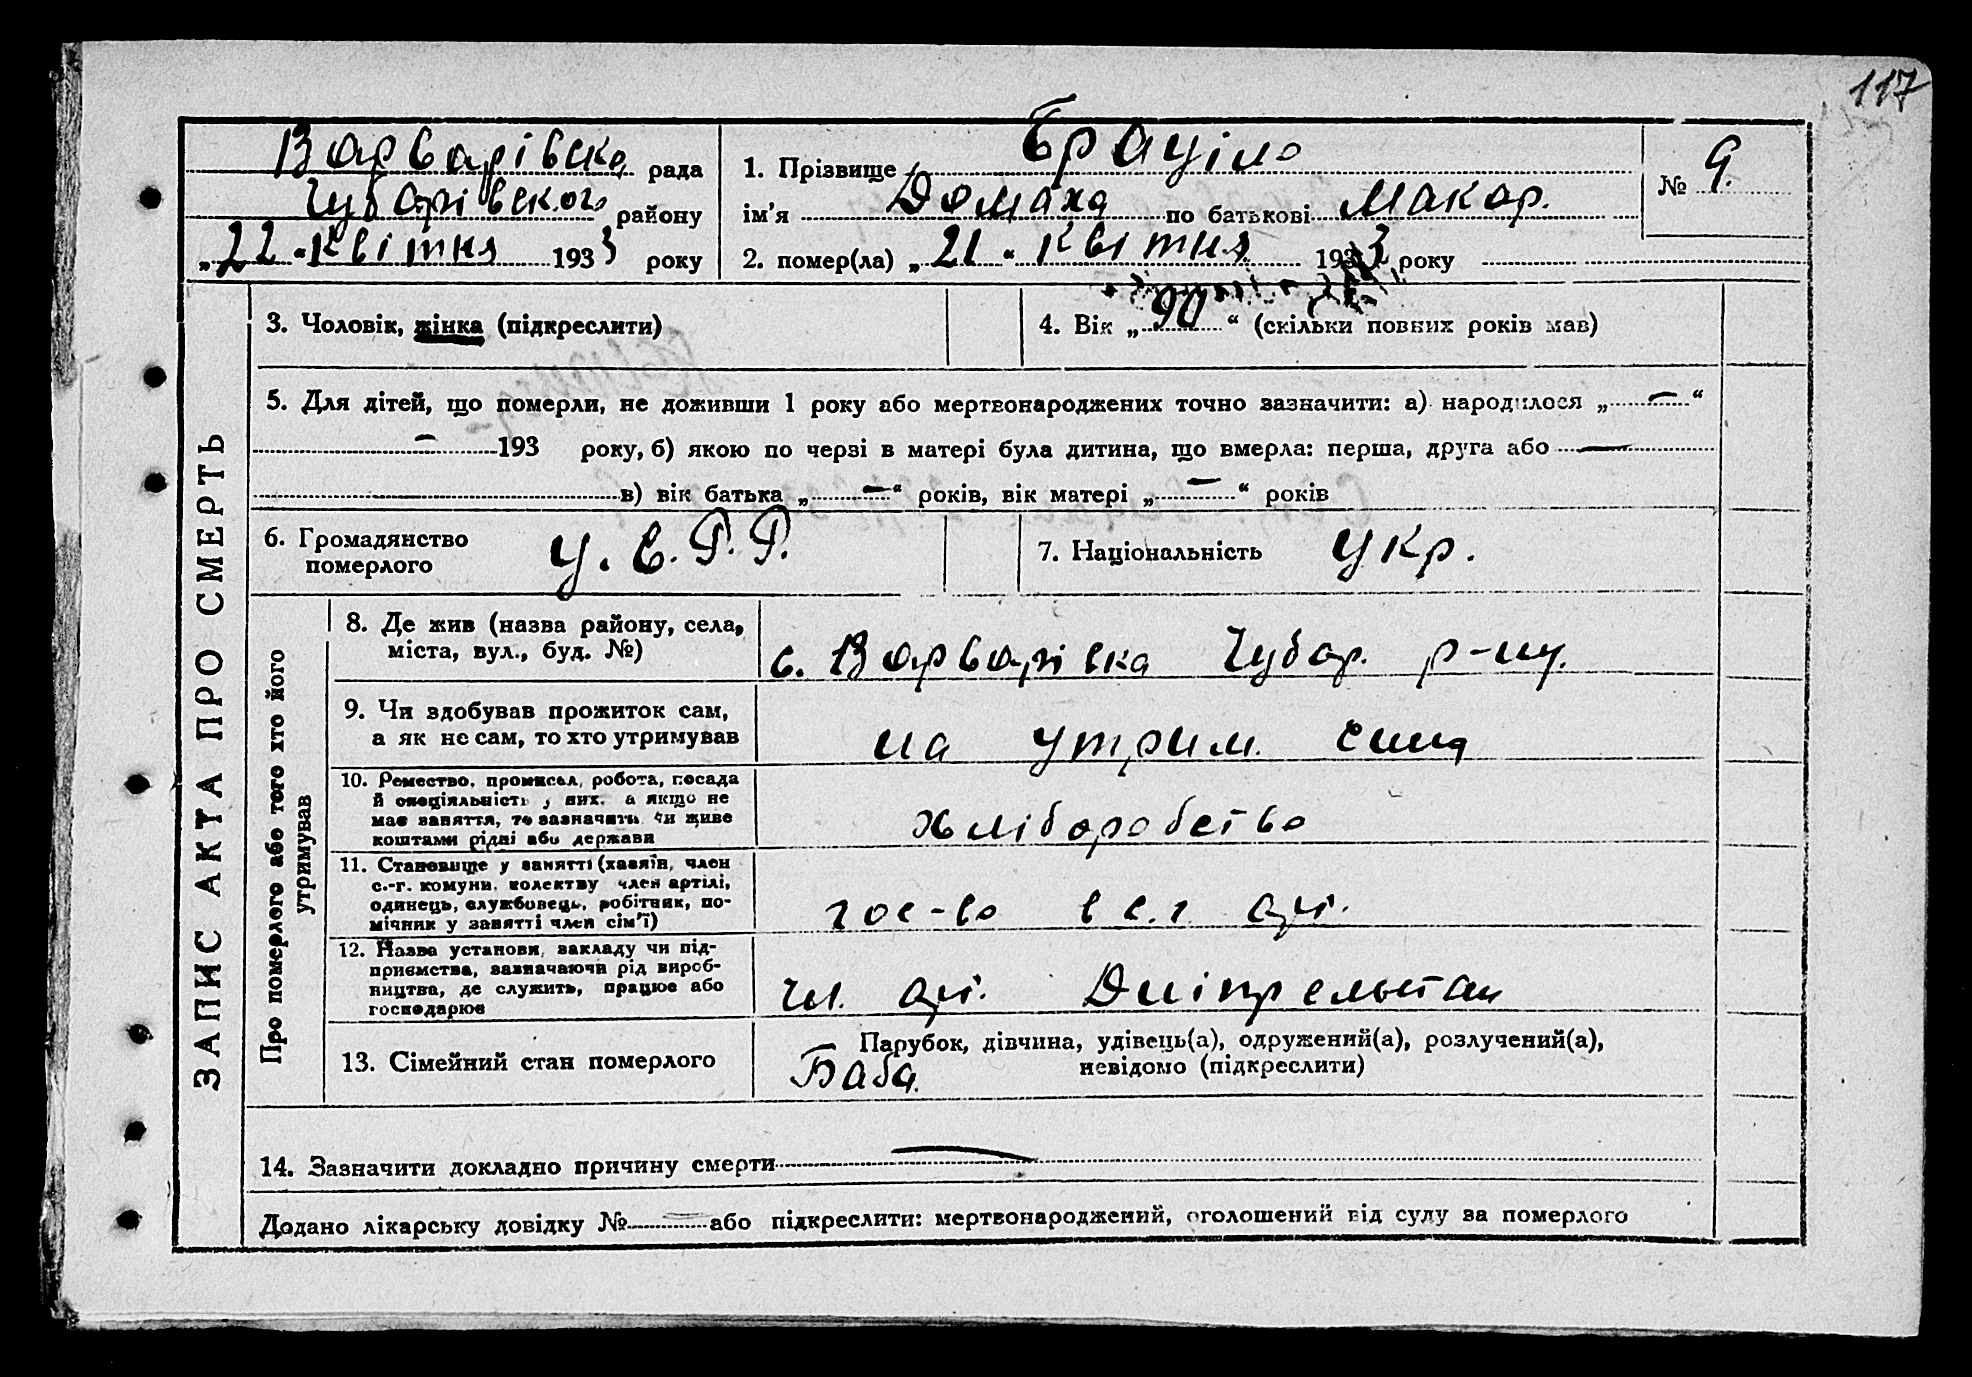 117
Варварівська рада
Чубарівського району
„22“ Квітня 1933 року
1. Прізвище Браціло
ім'я Домаха по батькові Макар.
2. помер(ла) „21“ Квітня 1933 року
№ 9.
3. Чоловік, жінка (підкреслити)
4. Вік „90“ (скільки повних років мав)
5. Для дітей, що померли, не доживши 1 року або мертвонароджених точно зазначити: а) народилося „—“
— 193 року, б) якою по черзі в матері була дитина, що вмерла: перша, друга або —
в) вік батька „—“ років, вік матері „—“ років
6. Громадянство
померлого
У.С.Р.Р.
7. Національність Укр.
ЗАПИС АКТА ПРО СМЕРТЬ
Про померлого або того хто його
утримував
8. Де жив (назва району, села,
міста, вул., буд. №)
с. Варварівка Чубар. р-ну.
9. Чи здобував прожиток сам,
а як не сам, то хто утримував
на утрим. сина
10. Ремество, промисел, робота, посада
й спеціяльність у них, а якщо не
має заняття, то зазначити чи живе
коштами рідні або держави
хліборобство
11. Становище у занятті (хазяїн, член
с.-г. комуни, колективу член артілі,
одинець, службовець, робітник, по-
мічник у занятті член сім'ї)
гос-во в с.г. арт.
12. Назва установи, закладу чи під-
приємства, зазначаючи рід вироб-
ництва, де служить, працює або
господарює
чл. арт. Дніпрельстан
13. Сімейний стан померлого
Парубок, дівчина, удівець(а), одружений(а), розлучений(а),
невідомо (підкреслити)
Баба.
14. Зазначити докладно причину смерти —
Додано лікарську довідку № — або підкреслити: мертвонароджений, оголошений від суду за померлого